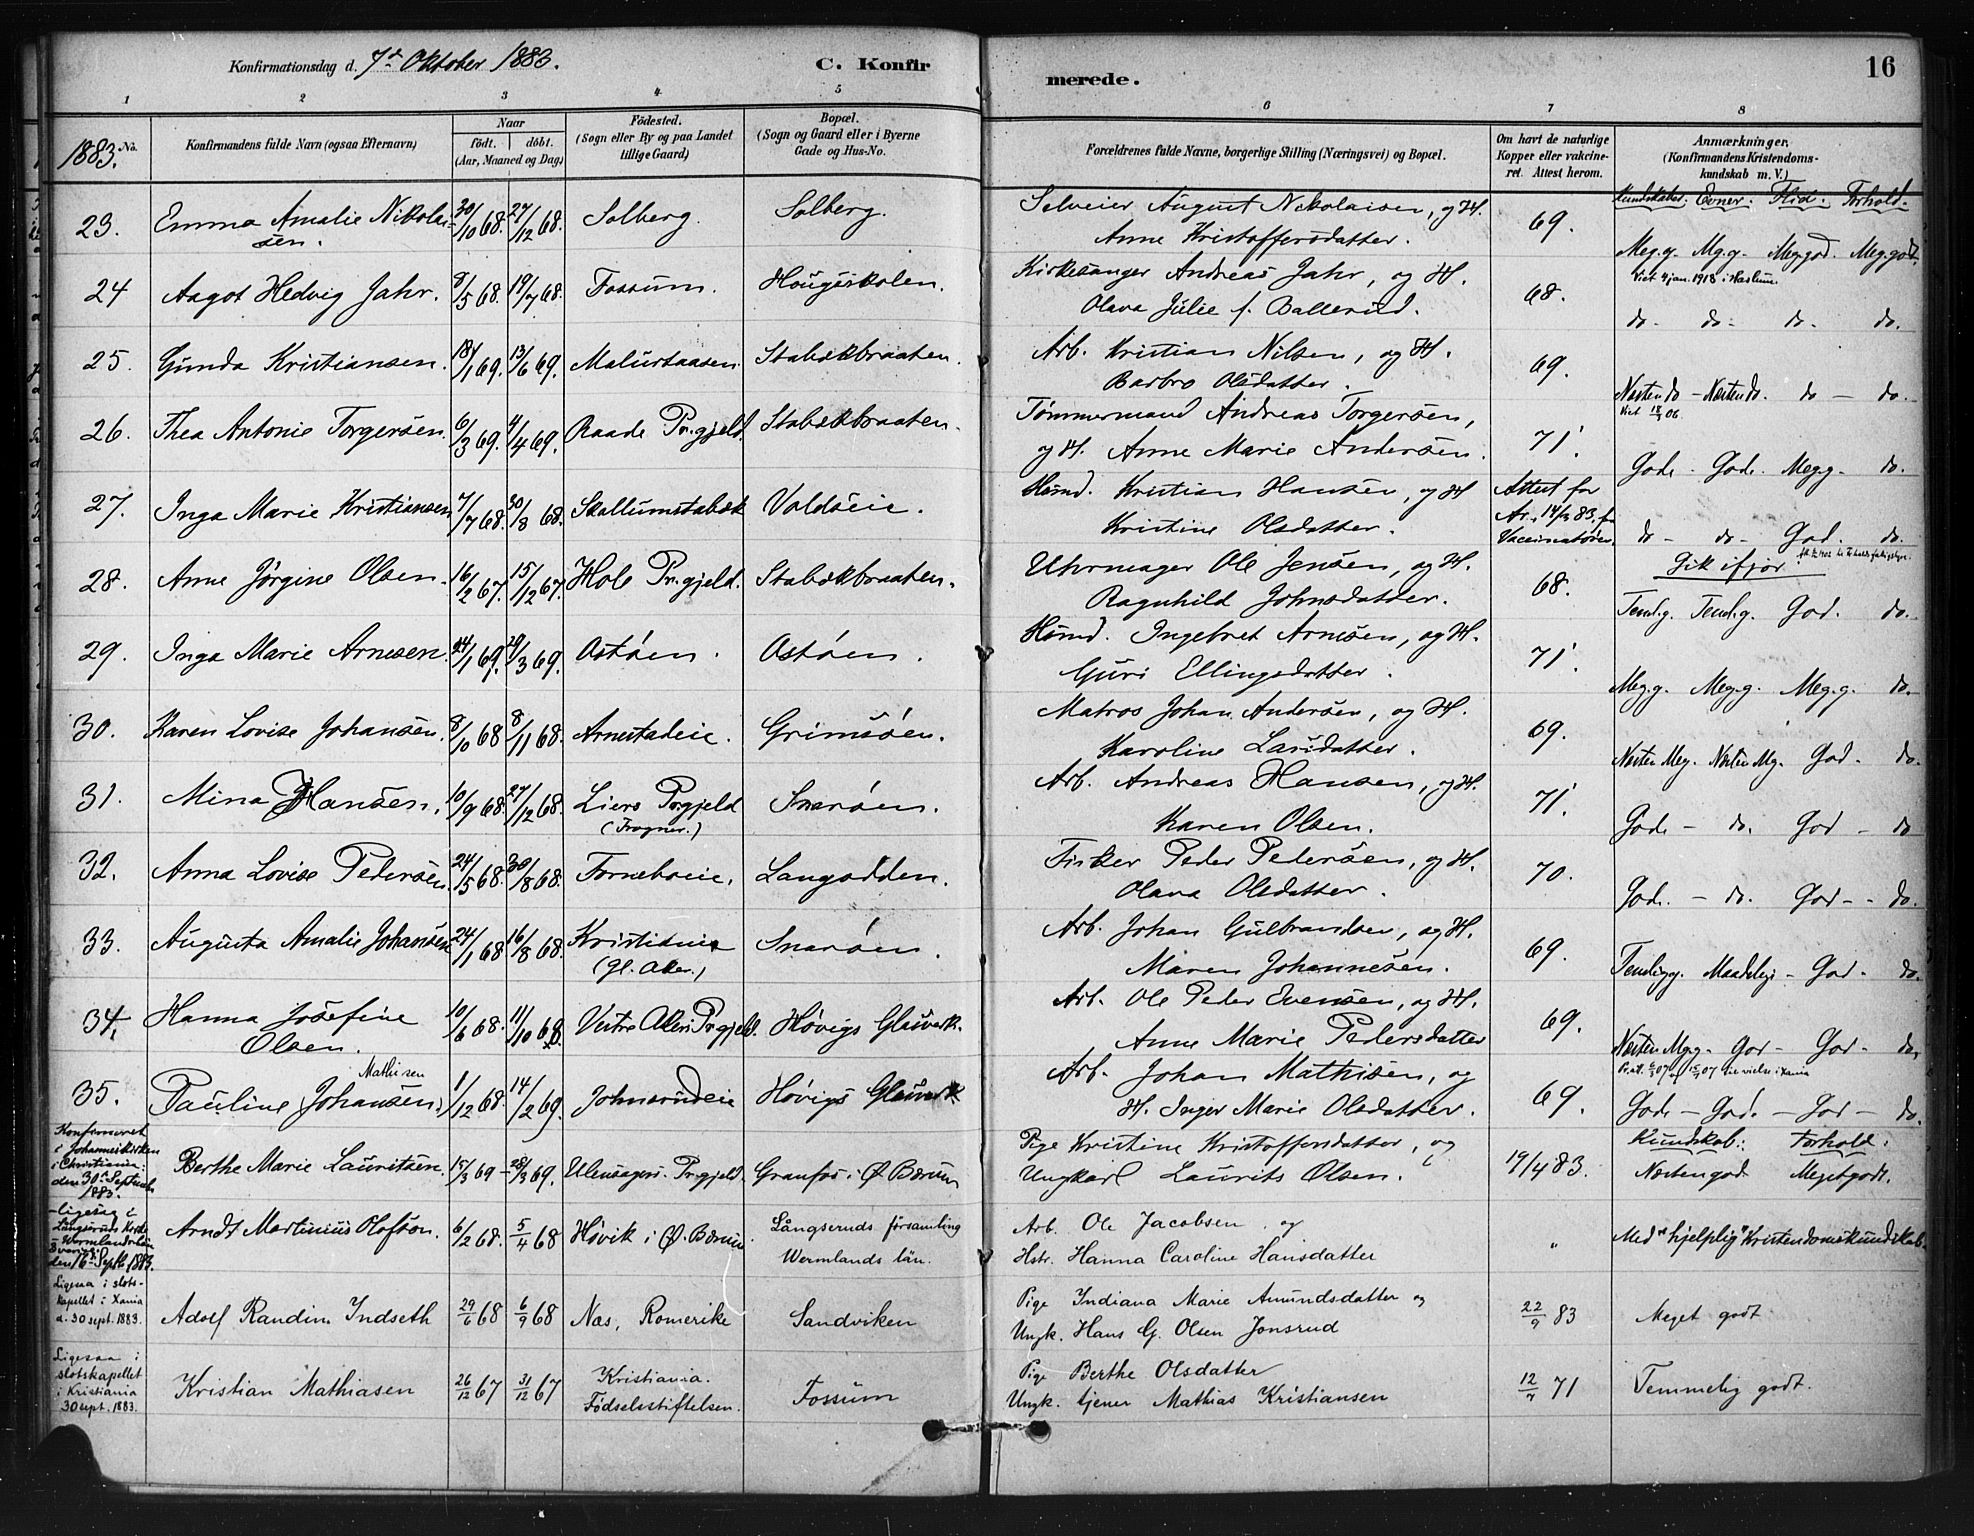 Konfirmationsdag d. 7de Oktober 1883.
C. Konfir
merede.
16
1 2 3 4 5 6 7 8
1883. No.
Konfirmandens fulde Navn (ogsaa Efternavn)
Naar
født. døbt.
(Aar, Maaned og Dag)
Fødested.
(Sogn eller By og paa Landet
tillige Gaard)
Bopæl.
(Sogn og Gaard eller i Byerne
Gade og Hus-No.
Forældrenes fulde Navne, borgerlige Stilling (Næringsvei) og Bopæl.
Om havt de naturlige
Kopper eller vakcine-
ret. Attest herom.
Anmærkninger.
(Konfirmandens Kristendoms-
kundskab m. V.)
Kundskaber. Evner. Flid. Forhold.
23. Emma Amalie Nikolai-
sen. 30/10 68. 27/12 68. Solberg. Solberg.
Selveier August Nikolaisen, og H.
Anne Kristoffersdatter. 69. Meg.g. Mg.g. Meg.god. Meg.god.
24 Aagot Hedvig Jahr. 8/5 68. 19/7 68. Fossum. Hougsskolen.
Kirkesanger Andreas Jahr, og H.
Olava Julie f. Ballerud. 68. do. do. do. do.
Viet 4 jan. 1918 i Haslum.
25. Gunda Kristiansen. 18/1 69. 13/6 69. Malurtaasen. Stabækbraaten.
Arb. Kristian Nilsen, og H.
Barbro Olsdatter. 69. Næsten do - Næsten do. do - do.
26. Thea Antonie Torgersen. 6/3 69. 4/4 69. Raade Pr.gjeld Stabækbraaten.
Tømmermand Andreas Torgersen,
og H. Anne Marie Andersen. 71. Gode. Gode. Meg.g. do.
27. Inga Marie Kristiansen 7/7 68. 30/8 68. Skallumstabæk Voldseie.
Husmd. Kristian Hansen, og H
Kristine Olsdatter. Attest for
83. fra
Vaccinatøren. do - do - God. do.
28. Anne Jørgine Olsen. 16/2 67. 15/12 67. Hole Pr.gjeld. Stabækbraaten.
Uhrmager Ole Jensen, og H.
Ragnhild Johnsdatter. 68. Gik ifjor.
Teml.g. Teml.g. God. do.
29. Inga Marie Arnesen. 24/1 69. 29/3 69. Ostøen. Ostøen.
Husmd. Ingebret Arnesen, og H.
Guri Ellingsdatter. 71. Meg.g. Meg.g. Meg.g. do.
30. Karen Lovise Johansen. 8/10 68 8/11 68. Arnestadeie. Grimsøen.
Matros Johan Andersen, og H.
Karoline Larsdatter. 69. Næsten Meg. Næsten Mg. God. do.
31. Mina Hansen. 10/9 68. 27/12 68. Liers Pr.gjeld
(Frogner.) Snarøen.
Arb. Andreas Hansen, og H.
Karen Olsen. 71. Gode - do. God - do
32. Anna Lovise Pedersen. 24/5 68. 30/8 68. Forneboeie. Langodden.
Fisker Peder Pedersen, og H.
Olava Olsdatter. 70. Gode. - do. God - - do.
33. Augusta Amalie Johansen 24/1 68 16/8 68. Kristiania
(Gl. Aker.) Snarøen.
Arb. Johan Gulbrandsen, og H.
Maren Johannesen. 69. Temlig g. Maadelige - God - do.
34. Hanna Josefine
Olsen. 10/6 68. 11/10 68. Vestre Akers Pr.gjeld. Høvigs Glasverk.
Arb. Ole Peder Evensen, og H.
Anne Marie Pedersdatter 69. Næsten Mg.g. God - God - do.
35. Mathisen
Pauline Johansen. 1/12 68. 14/2 69. Johnsrudeie Høvigs Glasverk
Arb. Johan Mathisen, og
H. Inger Marie Olsdatter. 69. Gode - Gode - God - do
Kundskab: Forhold:
Konfirmeret
i Johanneskirken
i Christiania:
den 30te September
1883.
Berthe Marie Lauritsen. 15/3 69 - 28/3 69. Ulensagers Pr.gjeld. Granfos i Ø. Bærum
Pige Kristine Kristoffersdatter, og
Ungkarl Laurits Olsen. 19/4 83. Næsten god Meget godt.
den 16de Septb. 1883.
Arndt Martinius Olofson. 6/2 68. 5/4 68 Høvik i Ø. Bærum Långseruds församling
Wermlands län.
Arb. Ole Jacobsen og
Hstr. Hanna Caroline Hansdatter " Med "hjelplig" Kristendomskundskab.
Ligesaa i slots-
kapellet i Xania
d. 30 sept. 1883.
Adolf Randin Indseth 29/6 68 6/9 68 Nes, Romerike Sandviken
Pige Indiana Marie Amundsdatter og
Ungk. Hans G. Olsen Jonsrud 22/9 83 Meget godt
Ligesaa i
slotskapellet
i Kristiania
30 sept. 1883.
Kristian Mathiasen 26/12 67 31/12 67 Kristiania.
Fødselsstiftelsen. Fossum
Pige Berthe Olsdatter
Ungk. tjener Mathias Kristiansen 12/7 71 Temmelig godt.